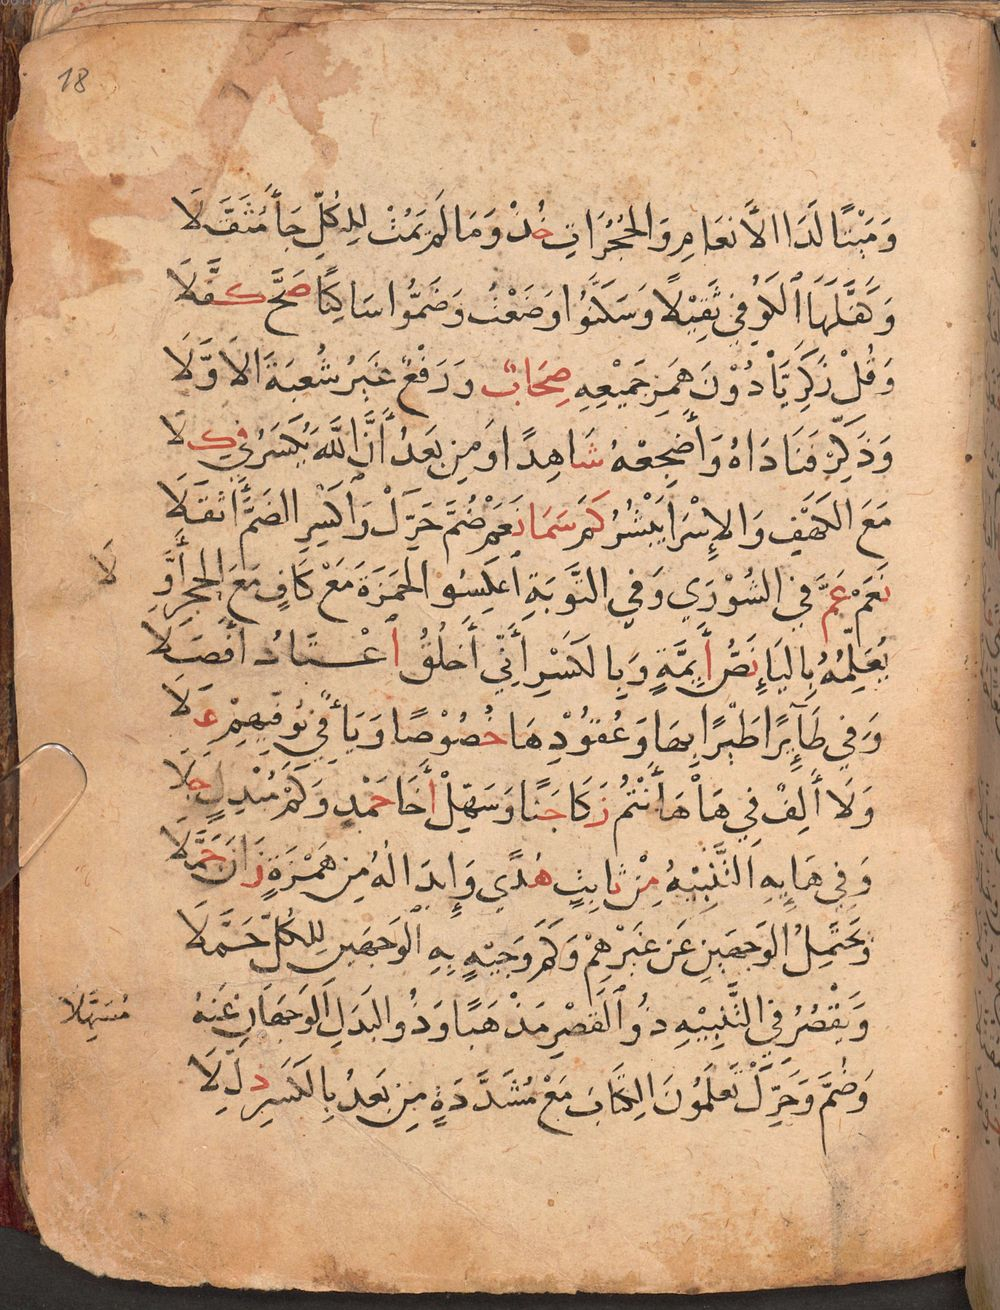 18
وَمَيْتًا لَدَا الاَنعَامِ وَالحُجُرَاتِ خُذْ وَمَا لَمْ يَمُتْ لِلكُلِّ جَأَ مُثَقَّلَا
وَكَفَّلَهَا الكُوفِي ثَقِيْلاً وَسَكَّنُوا وَضَعْتُ وَضَمُّوا سَاكِنًا صَحَّ كُفَّلَا
وَقُلْ زَكَرِيَّأ دُوْنَ هَمزِ جَمِيْعِهِ صِحَابٌ وَرَفْعٌ غَيرُ شُعبَةَ الاَوَّلَا
وَذَكِّرْ فَنَادَاهُ وَأَضجِعْهُ شَاهِدًا وَمِن بَعدُ أَنَّ اللَّهَ يُكسَرُ فِي كِلَا
مَعَ الكَهْفِ وَالإِسْرَأ يَبْشُرُ كَمْ سَمَا نَعَمْ ضُمَّ حَرِّكْ وَاكسِرِ الضَمَّ أَثقَلَا
نَعَمْ عَمَّ فِي الشُوْرَي وَفِي التَّوبَةِ اعكِسُوا لِحَمزَةَ مَعْ كَافٍ مَعَ الحِجرِ أَوَّ
لَا
يُعَلِّمُهُ بِاليَأ نَصُّ أَيِمَّةٍ وَبِالكَسرِ أَنِّي أَخلُقُ اعْتَادَ أَفصَلَا
وَفِي طَآئِرًا طَيْرًا بِهَا وَعُقُوْدِهَا خُصُوْصًا وَيَأٌ فِي نُوَفِّيهِمْ عَلَا
وَلَا أَلِفٌ فِي هَأ هَأَنْتُمْ زَكَا جَنًا وَسَهِّلْ أَخَا حَمْدٍ وَكَمْ مُبْدِلٍ جَلَا
وَفِي هَايِهِ التَّنبِيْهُ مِنْ ثَابِتٍ هُدًي وَإِبدَالُهُ مِن هَمْزَةٍ زَانَ جَمَّلَا
وَيَحتَمِلُ الوَجهَينِ عَن غَيْرِهِمْ وَكَمْ وَجِيْهٍ بِهِ الوَجهَينِ لِلكُلِّ حَمَّلَا
وَيَقْصُرُ فِي التَّنبِيْهِ ذُو القَصْرِ مَذْهَبًا وَذُو البَدَلِ الوَجهَانِ عَنهُ
مُسَهِّلَا
وَضُمَّ وَحَرِّكْ تَعلَمُونَ الكِتَابَ مَعْ مُشَدَّدَةٍ مِن بَعدُ بِالكَسرِ ذُلِّلَا